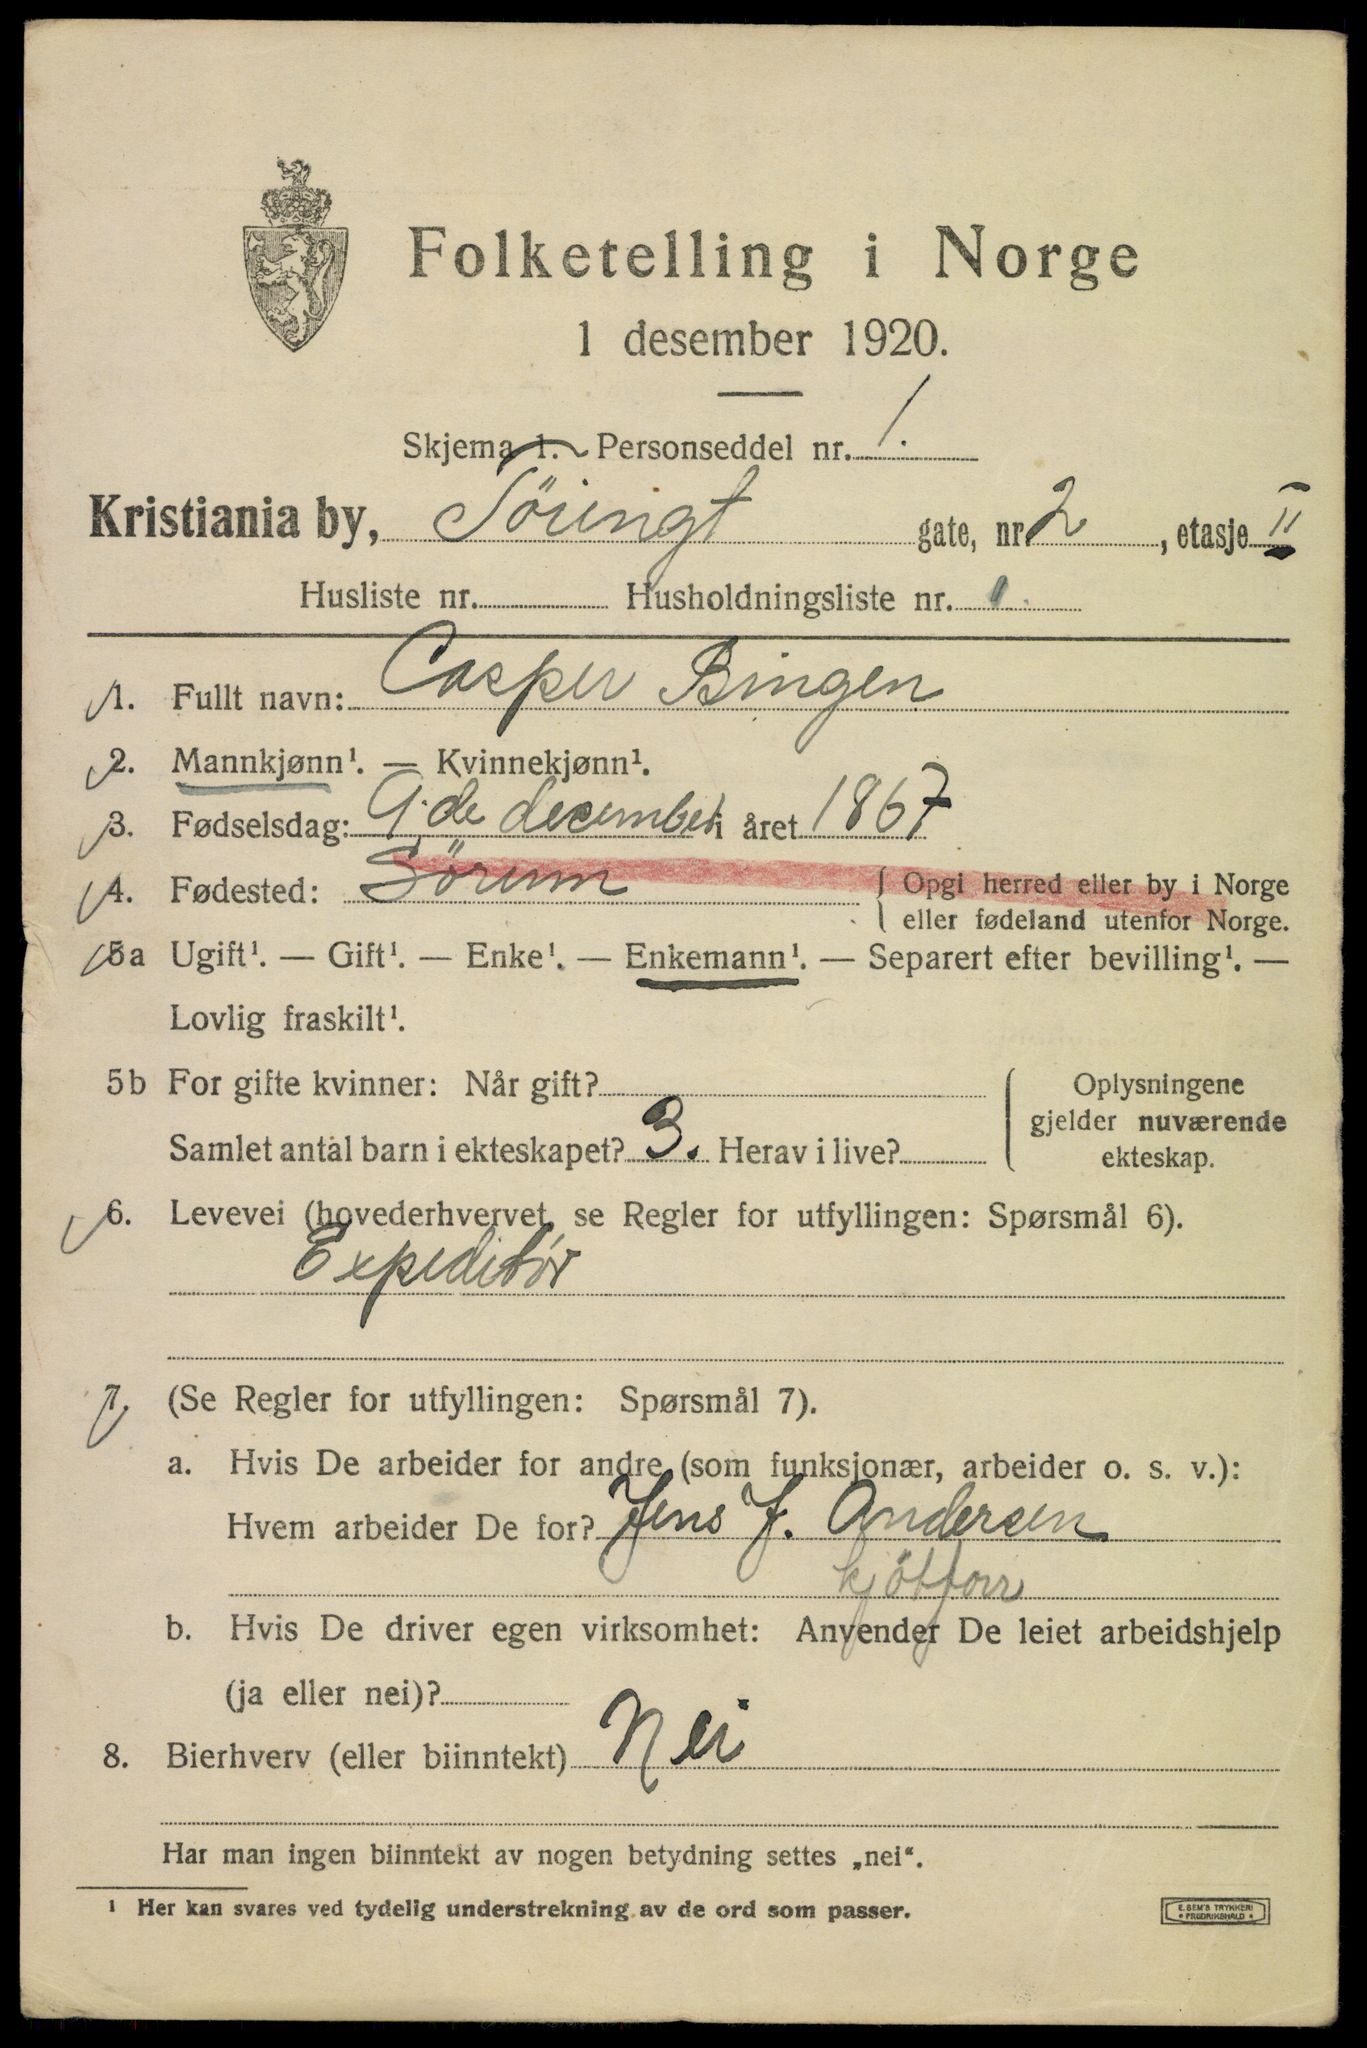 Folketelling i Norge
1 desember 1920.
Skjema 1. Personseddel nr. 1.
Kristiania by, Töiengt gate, nr 2, etasje II
Husliste nr. Husholdningsliste nr. 1.
1. Fullt navn: Casper Bingen
2. Mannkjønn¹. — Kvinnekjønn¹.
3. Fødselsdag: 9.de december i året 1867
4. Fødested: Sörum { Opgi herred eller by i Norge
eller fødeland utenfor Norge.
5a Ugift¹. — Gift¹. — Enke¹. — Enkemann¹. — Separert efter bevilling¹. —
Lovlig fraskilt¹.
5b For gifte kvinner: Når gift? Oplysningene
gjelder nuværende
Samlet antal barn i ekteskapet? 3. Herav i live? ekteskap.
6. Levevei (hovederhvervet, se Regler for utfyllingen: Spørsmål 6).
Expeditör
7. (Se Regler for utfyllingen: Spørsmål 7).
a. Hvis De arbeider for andre (som funksjonær, arbeider o. s. v.):
Hvem arbeider De for? Jens J. Andersen
kjötforr
b. Hvis De driver egen virksomhet: Anvender De leiet arbeidshjelp
(ja eller nei)?
8. Bierhverv (eller biinntekt) Nei
Har man ingen biinntekt av nogen betydning settes „nei“.
¹ Her kan svares ved tydelig understrekning av de ord som passer.
E. SEM'S TRYKKERI
* FREDRIKSHALD *